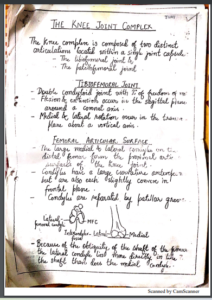 THE KNEE JOINT COMPLEX
The knee complex is composed of two distinct
articulations located within a single joint capsule
- The tibiofemoral joint &
- The patellofemoral joint
TIBIOFEMORAL JOINT
- Double condyloid joint with 2° of freedom of
- Flexion & extension occurs in the sagittal plane
around a coronal axis
- Medial & lateral rotation occurs in the trans
plane about a vertical axis.
FEMORAL ARTICULAR SURFACE
- The large medial & lateral condyles on the
distal femur form the proximal arti
surface of the knee joint
- Condyles have a large curvature anterop
but are also each slightly convex in
frontal plane.
- Condyles are separated by patellar groove
Lateral
femoral condyle
MFC
Lateral
Medial
- Because of the obliquity of the shaft of the femur
the lateral condyle lies more directly in line
the shaft than does the medial condyle.
Scanned by CamScanner